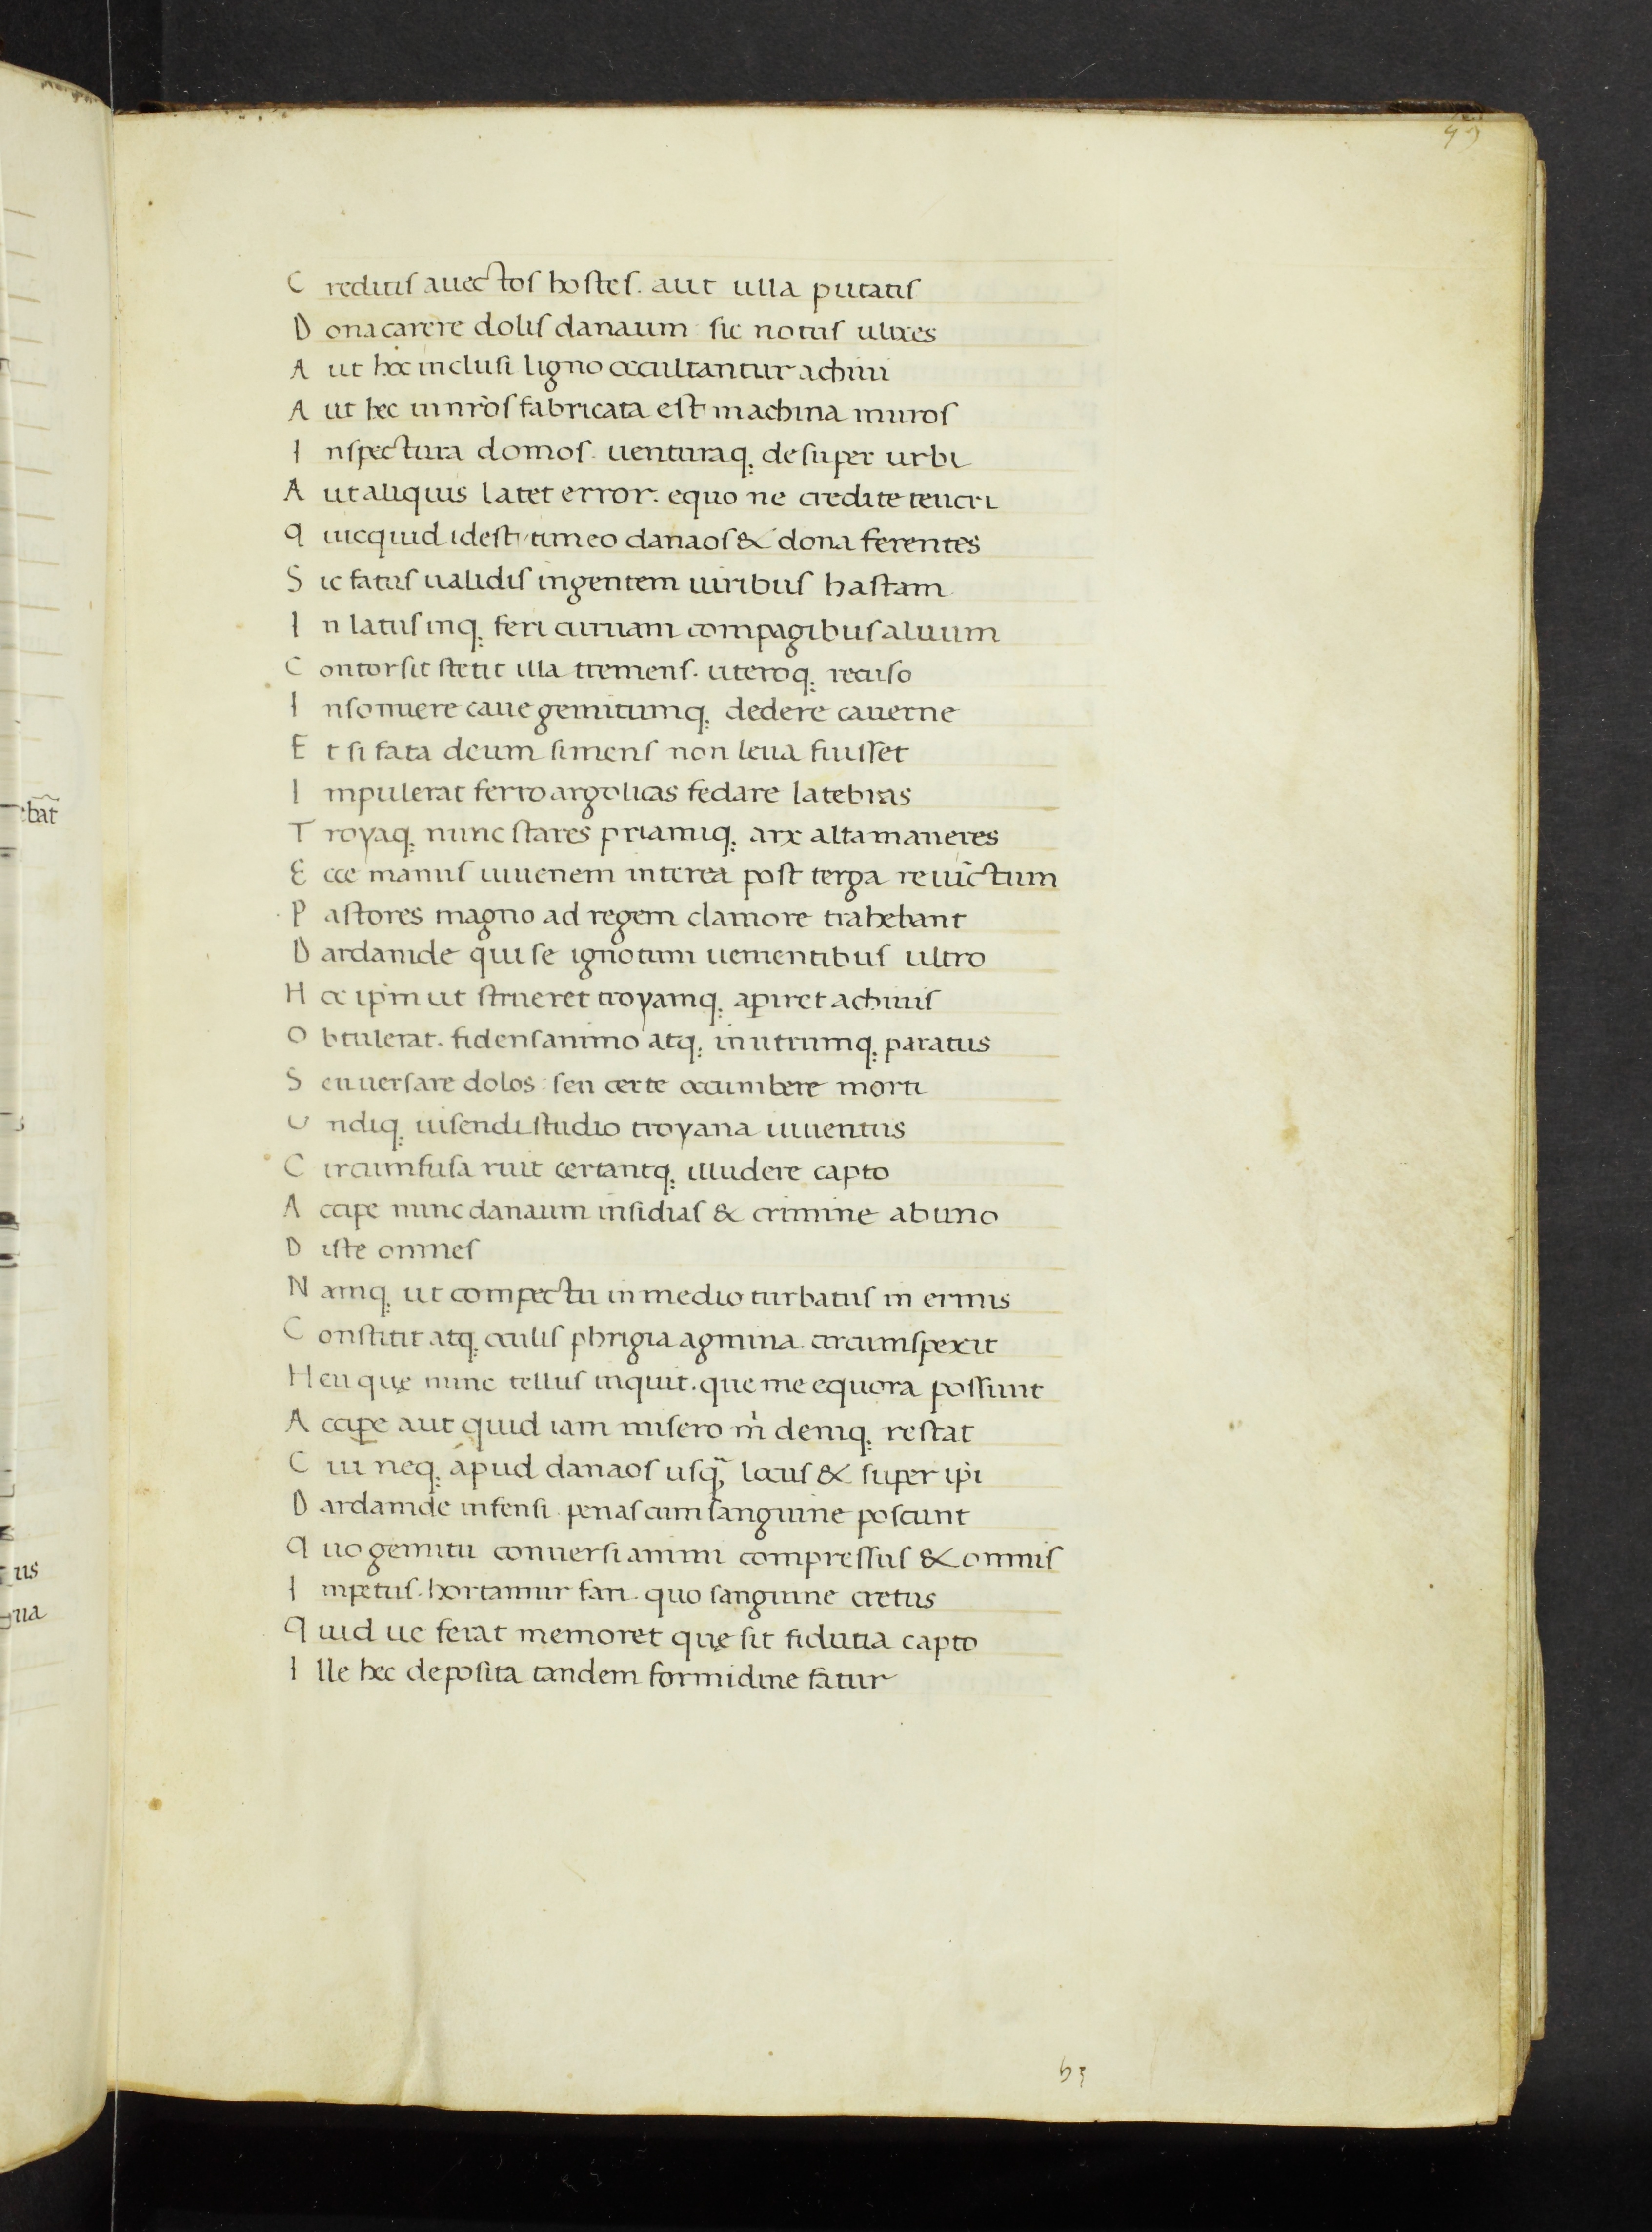 43
C reditis auectos hostes. aut ulla putatis
D ona carere dolis danaum: sic notus ulixes
A ut hoc inclusi ligno occultantur achiui
A ut hec in nr̃os fabricata est machina muros
I nspectura domos. uenturaq; desuper urbi
A ut aliquis latet error. equo ne credite teucri
Q uicquid id est, timeo danaos & dona ferentes
S ic fatus ualidis ingentem uiribus hastam
I n latus inq; feri curuam compagibus aluum
C ontorsit stetit illa tremens. uteroq; recuso
I nsonuere caue gemitumq; dedere cauerne
E t si fata deum si mens non leua fuisset
I mpulerat ferro argolicas fedare latebras
T royaq; nunc stares priamiq; arx alta maneres
E cce manus iuuenem interea post terga reuictum
P astores magno ad regem clamore trahebant
D ardanide qui se ignotum uenientibus ultro
H oc ip̃m ut strueret troyamq; aperiret achiuis
O btulerat. fidens animo atq; in utrumq; paratus
S eu uersare dolos: seu certe occumbere morti
U ndiq; uisendi studio troyana iuuentus
C ircumfusa ruit certantq; illudere capto
A ccipe nunc danaum insidias & crimine ab uno
D iste omnes
N amq; ut compectu in medio turbatus in ermis
C onstitit atq; oculis phrigia agmina circumspexit
H eu quę nunc tellus inquit. que me equora possunt
A ccipe aut quid iam misero m̃ deniq; restat
C ui neq; apud danaos usq̃; locus & super ip̃i
D ardanide infensi. penas cum sanguine poscunt
Q uo gemitu conuersi animi compressus & omnis
I mpetus. hortamur fari. quo sanguine cretus
Q uid ue ferat memoret quę sit fidutia capto
I lle hec deposita tandem formidine fatur
b3
ebat̃
us
ua